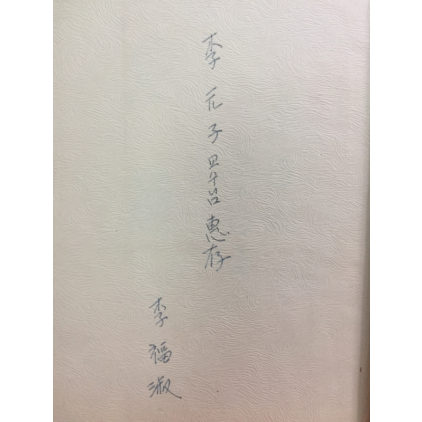 李元子畢召惠存
李福淑